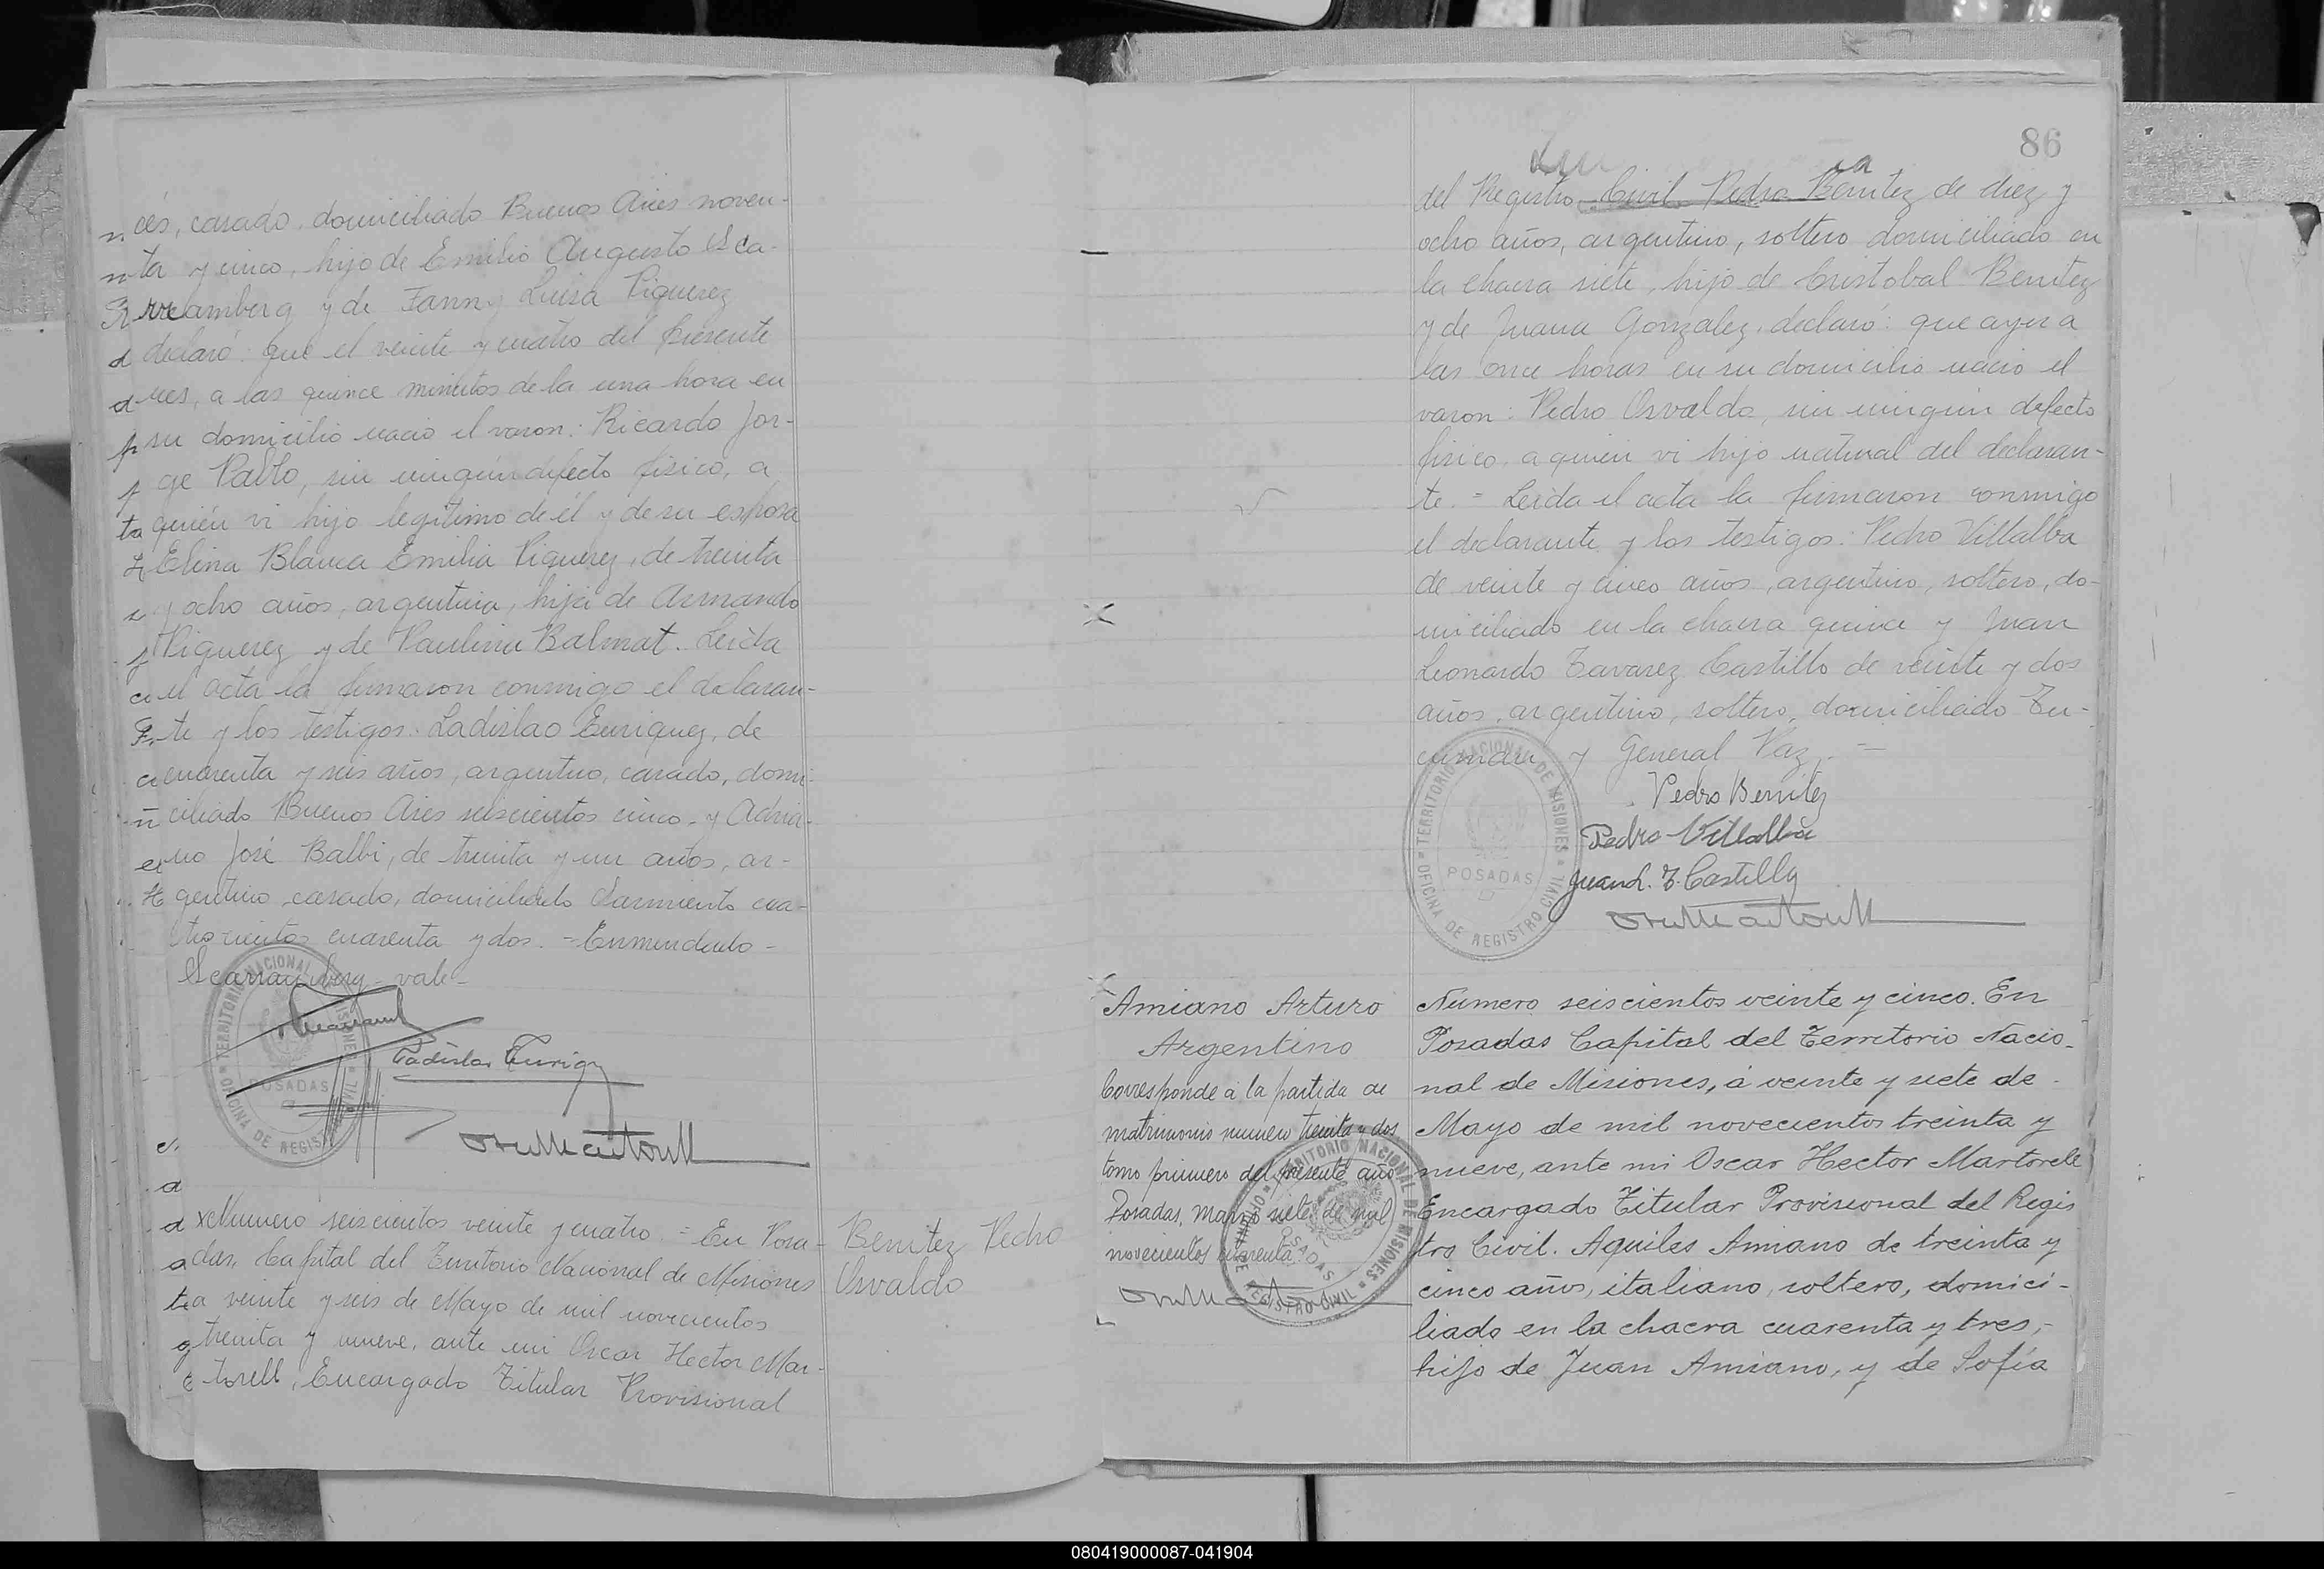 cés, casado, domiciliado Buenos Aires noven-
ta y cinco, hijo de Emilio Augusto Sca-
rramberg y de Fanny Luisa Piquerez
declaró: que el veinte y cuatro del presente
mes, a las quince minutos de la una hora en
su domicilio nació el varon: Ricardo Jor-
ge Pablo, sin ningún defecto fisico, a
quién vi hijo legítimo de él y de su esposa
Elina Blanca Emilia Piquerez, de treinta
y ocho años, argentina, hija de Armando
Piquerez y de Paulina Balmat. Leida
el acta la firmaron conmigo el declaran-
te y los testigos: Ladislao Enriquez, de
cuarenta y seis años, argentino, casado, domi-
ciliado Buenos Aires seiscientos cinco y Adria-
no José Balbi, de treinta y un años, ar-
gentino, casado, domiciliado Sarmiento cua-
trocientos cuarenta y dos. - Enmendado -
Scarramberg - vale -
TERRITORIO NACIONAL DE MISIONES
POSADAS
OFICINA DE REGISTRO CIVIL
Numero seiscientos veinte y cuatro. - En Posa-
das, Capital del Territorio Nacional de Misiones
a veinte y seis de Mayo de mil novecientos
treinta y nueve, ante mi Oscar Hector Mar-
torell, Encargado Titular Provisional
Benitez Pedro
Osvaldo
86
del Registro Civil Pedro Benitez de diez y
ocho años, argentino, soltero domiciliado en
la chacra siete, hijo de Cristobal Benitez
y de Juana Gonzalez, declaró: que ayer a
las once horas en su domicilio nació el
varon: Pedro Osvaldo, sin ningún defecto
fisico, a quien vi hijo natural del declaran-
te. - Leida el acta la firmaron conmigo
el declarante y los testigos: Pedro Villalba
de veinte y cinco años, argentino, soltero, do-
miciliado en la chacra quince y Juan
Leonardo Tavarez Castillo de veinte y dos
años, argentino, soltero, domiciliado Tu-
cumán y General Paz. -
Pedro Benitez
Pedro Villalba
Juan L. T. Castillo
TERRITORIO NACIONAL DE MISIONES
POSADAS
OFICINA DE REGISTRO CIVIL
Amiano Arturo
Argentino
Corresponde a la partida de
matrimonio numero treinta y dos
tomo primero del presente año
Posadas, marzo siete de mil
novecientos cuarenta
TERRITORIO NACIONAL DE MISIONES
POSADAS
REGISTRO CIVIL
Número seiscientos veinte y cinco. En
Posadas Capital del Territorio Nacio-
nal de Misiones, á veinte y siete de
Mayo de mil novecientos treinta y
nueve, ante mi Oscar Hector Martorell
Encargado Titular Provisional del Regis
tro Civil. Aquiles Amiano de treinta y
cinco años, italiano, soltero, domici-
liado en la chacra cuarenta y tres,-
hijo de Juan Amiano, y de Sofía
080419000087-041904